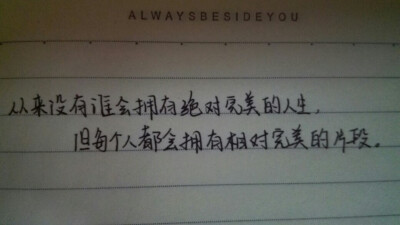 ALWAYSBESIDEYOU
从来没有谁会拥有绝对完美的人生,
但每个人都会拥有相对完美的片段。